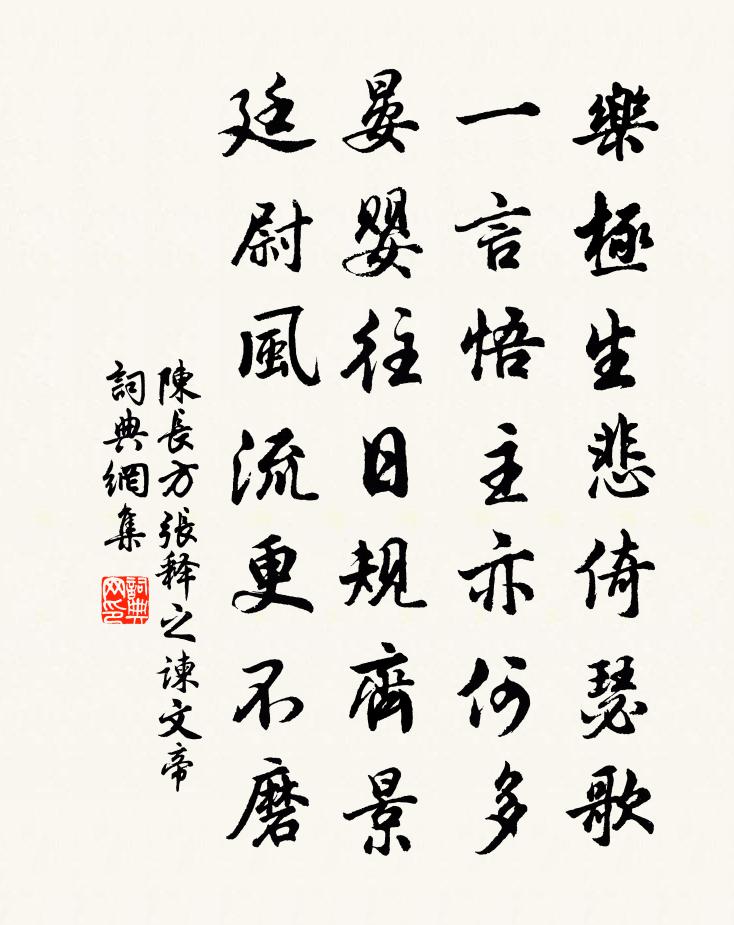 樂極生悲倚瑟歌
一言悟主亦何多
晏嬰往日規齊景
廷尉風流更不磨
陳長方張释之諫文帝
詞典網集
詞典网印